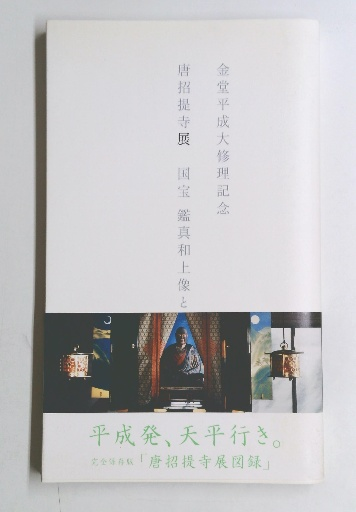 金堂平成大修理記念
唐招提寺展 国宝 鑑真和上像と
平成発、天平行き。
完全保存版「唐招提寺展図録」